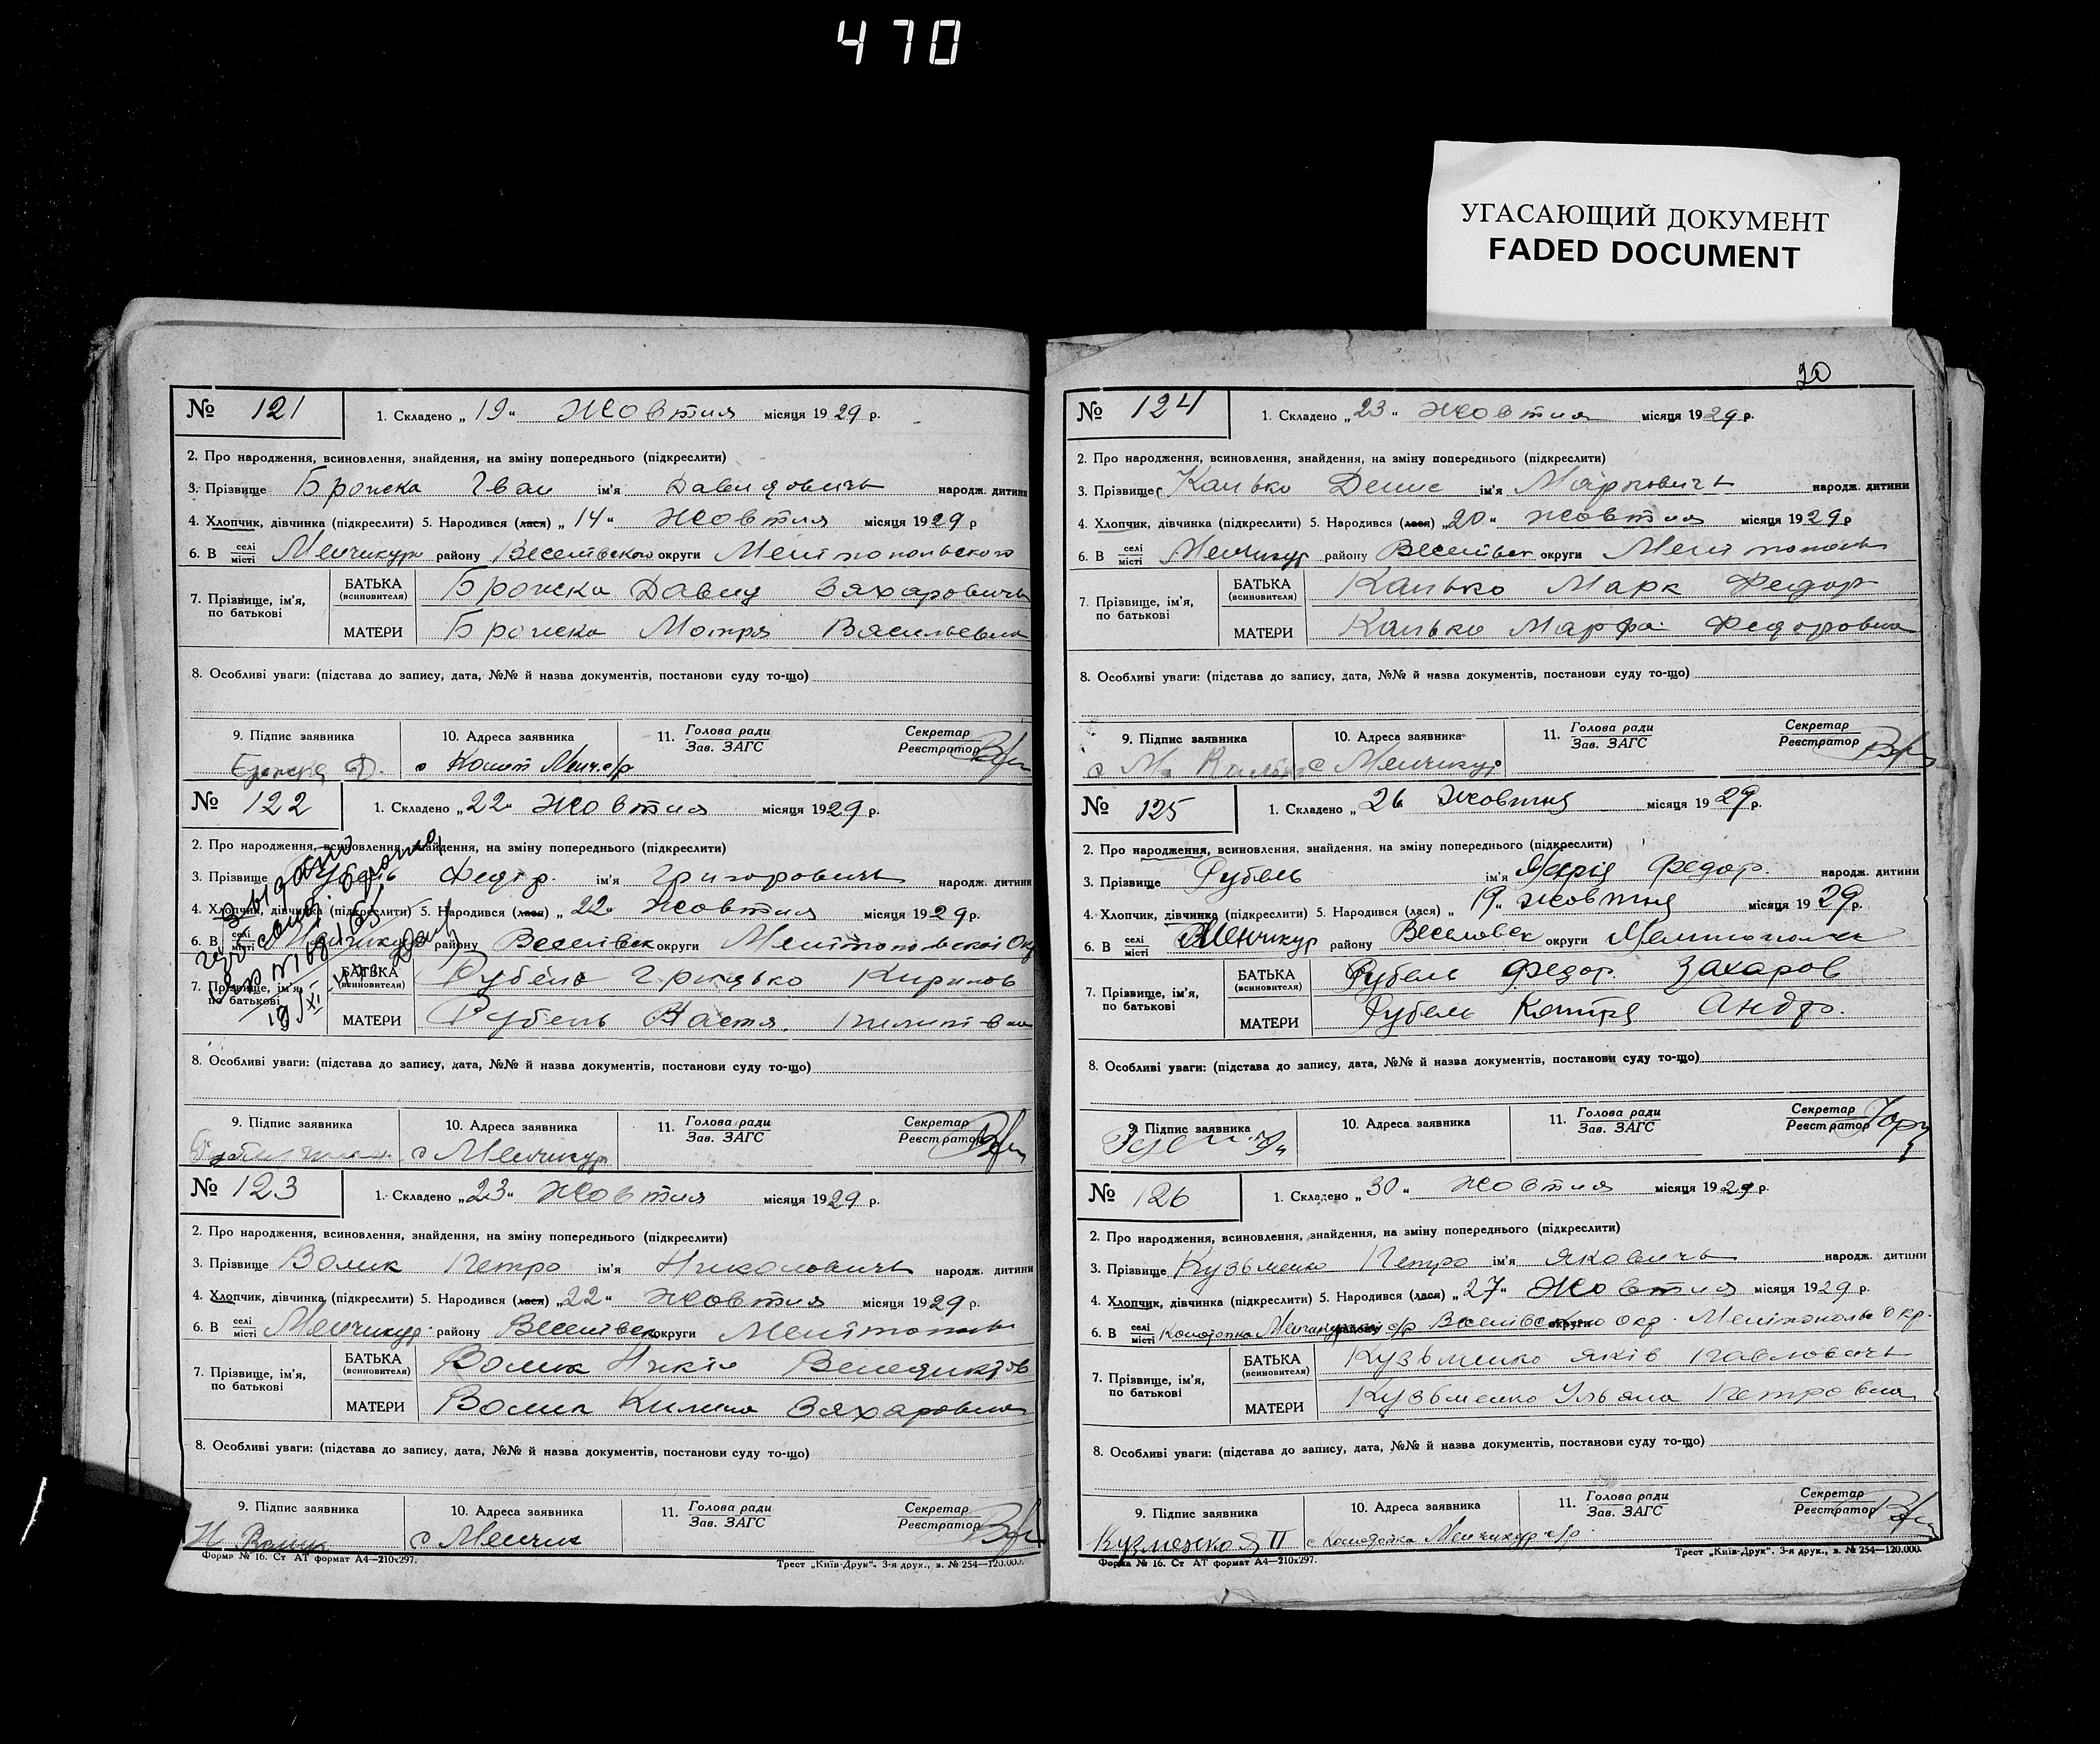 470
УГАСАЮЩИЙ ДОКУМЕНТ
FADED DOCUMENT
№ 121 1. Складено „19“ Жовтня місяця 1929 р.
2. Про народження, всиновлення, знайдення, на зміну попереднього (підкреслити)
3. Прізвище Іван ім'я Давидовичь народж. дитини
4. Хлопчик, дівчинка (підкреслити) 5. Народився (лася) „14“ Жовтня місяця 1929 р
6. В селі місті Менчикур району Веселівского округи Мелітопольского
7. Прізвище, ім'я, по батькові БАТЬКА (всиновителя) Давид Захаровичь
МАТЕРИ Мотря Васильевна
8. Особливі уваги: (підстава до запису, дата, №№ й назва документів, постанови суду то-що)
9. Підпис заявника 10. Адреса заявника 11. Голова ради Зав. ЗАГС Секретар Реєстратор
Д. с
№ 122 1. Складено „22“ Жовтня місяця 1929 р.
2. Про народження, всиновлення, знайдення, на зміну попереднього (підкреслити)
3. Прізвище Федір ім'я Григоровичь народж. дитини
4. Хлопчик, дівчинка (підкреслити) 5. Народився (лася) „22“ Жовтня місяця 1929 р.
6. В селі місті Менчикур району Веселівск округи Мелітопольскої Окр
7. Прізвище, ім'я, по батькові БАТЬКА (всиновителя) Рубель Грицько
МАТЕРИ Рубель Настя
8. Особливі уваги: (підстава до запису, дата, №№ й назва документів, постанови суду то-що)
9. Підпис заявника 10. Адреса заявника 11. Голова ради Зав. ЗАГС Секретар Реєстратор
с Менчикур
№ 123 1. Складено „23“ Жовтня місяця 1929 р.
2. Про народження, всиновлення, знайдення, на зміну попереднього (підкреслити)
3. Прізвище Волик Петро ім'я Николовичь народж. дитини
4. Хлопчик, дівчинка (підкреслити) 5. Народився (лася) „22“ Жовтня місяця 1929 р.
6. В селі місті Менчикур району Веселівск округи Мелітополь
7. Прізвище, ім'я, по батькові БАТЬКА (всиновителя) Волик
МАТЕРИ Волик Килина Захаровна
8. Особливі уваги: (підстава до запису, дата, №№ й назва документів, постанови суду то-що)
9. Підпис заявника 10. Адреса заявника 11. Голова ради Зав. ЗАГС Секретар Реєстратор
Н Волик с Менчик
Форма № 16. Ст АТ формат А4—210х297. Трест „Київ-Друк“. 3-я друк., з. № 254—120.000.
20
№ 124 1. Складено „23“ Жовтня місяця 1929 р.
2. Про народження, всиновлення, знайдення, на зміну попереднього (підкреслити)
3. Прізвище Канько Денис ім'я Марковичь народж. дитини
4. Хлопчик, дівчинка (підкреслити) 5. Народився (лася) „20“ Жовтня місяця 1929 р
6. В селі місті Менчикур району Веселівск округи Мелітополь
7. Прізвище, ім'я, по батькові БАТЬКА (всиновителя) Канько Марк Федор
МАТЕРИ Канько Марфа Федоровна
8. Особливі уваги: (підстава до запису, дата, №№ й назва документів, постанови суду то-що)
9. Підпис заявника 10. Адреса заявника 11. Голова ради Зав. ЗАГС Секретар Реєстратор
с Менчикур
№ 125 1. Складено „26 Жовтня місяця 1929 р.
2. Про народження, всиновлення, знайдення, на зміну попереднього (підкреслити)
3. Прізвище Рубель ім'я Марія Федор. народж. дитини
4. Хлопчик, дівчинка (підкреслити) 5. Народився (лася) „19“ Жовтня місяця 1929 р.
6. В селі місті Менчикур району Веселовск округи
7. Прізвище, ім'я, по батькові БАТЬКА (всиновителя) Рубель Федор. Захаров
МАТЕРИ Рубель Андр.
8. Особливі уваги: (підстава до запису, дата, №№ й назва документів, постанови суду то-що)
9. Підпис заявника 10. Адреса заявника 11. Голова ради Зав. ЗАГС Секретар Реєстратор
№ 126 1. Складено „30“ Жовтня місяця 1929 р.
2. Про народження, всиновлення, знайдення, на зміну попереднього (підкреслити)
3. Прізвище Кузьменко Петро ім'я Яковичь народж. дитини
4. Хлопчик, дівчинка (підкреслити) 5. Народився (лася) „27“ Жовтня місяця 1929 р.
6. В селі місті с/р Окр. Мелітополь Окр.
7. Прізвище, ім'я, по батькові БАТЬКА (всиновителя) Кузьменко Яків Павловичь
МАТЕРИ Кузьменко Ульяна Петровна
8. Особливі уваги: (підстава до запису, дата, №№ й назва документів, постанови суду то-що)
9. Підпис заявника 10. Адреса заявника 11. Голова ради Зав. ЗАГС Секретар Реєстратор
Кузменко Я П с Менчикур с/р
Форма № 16. Ст АТ формат А4—210х297. Трест „Київ-Друк“. 3-я друк., з. № 254—120.000.